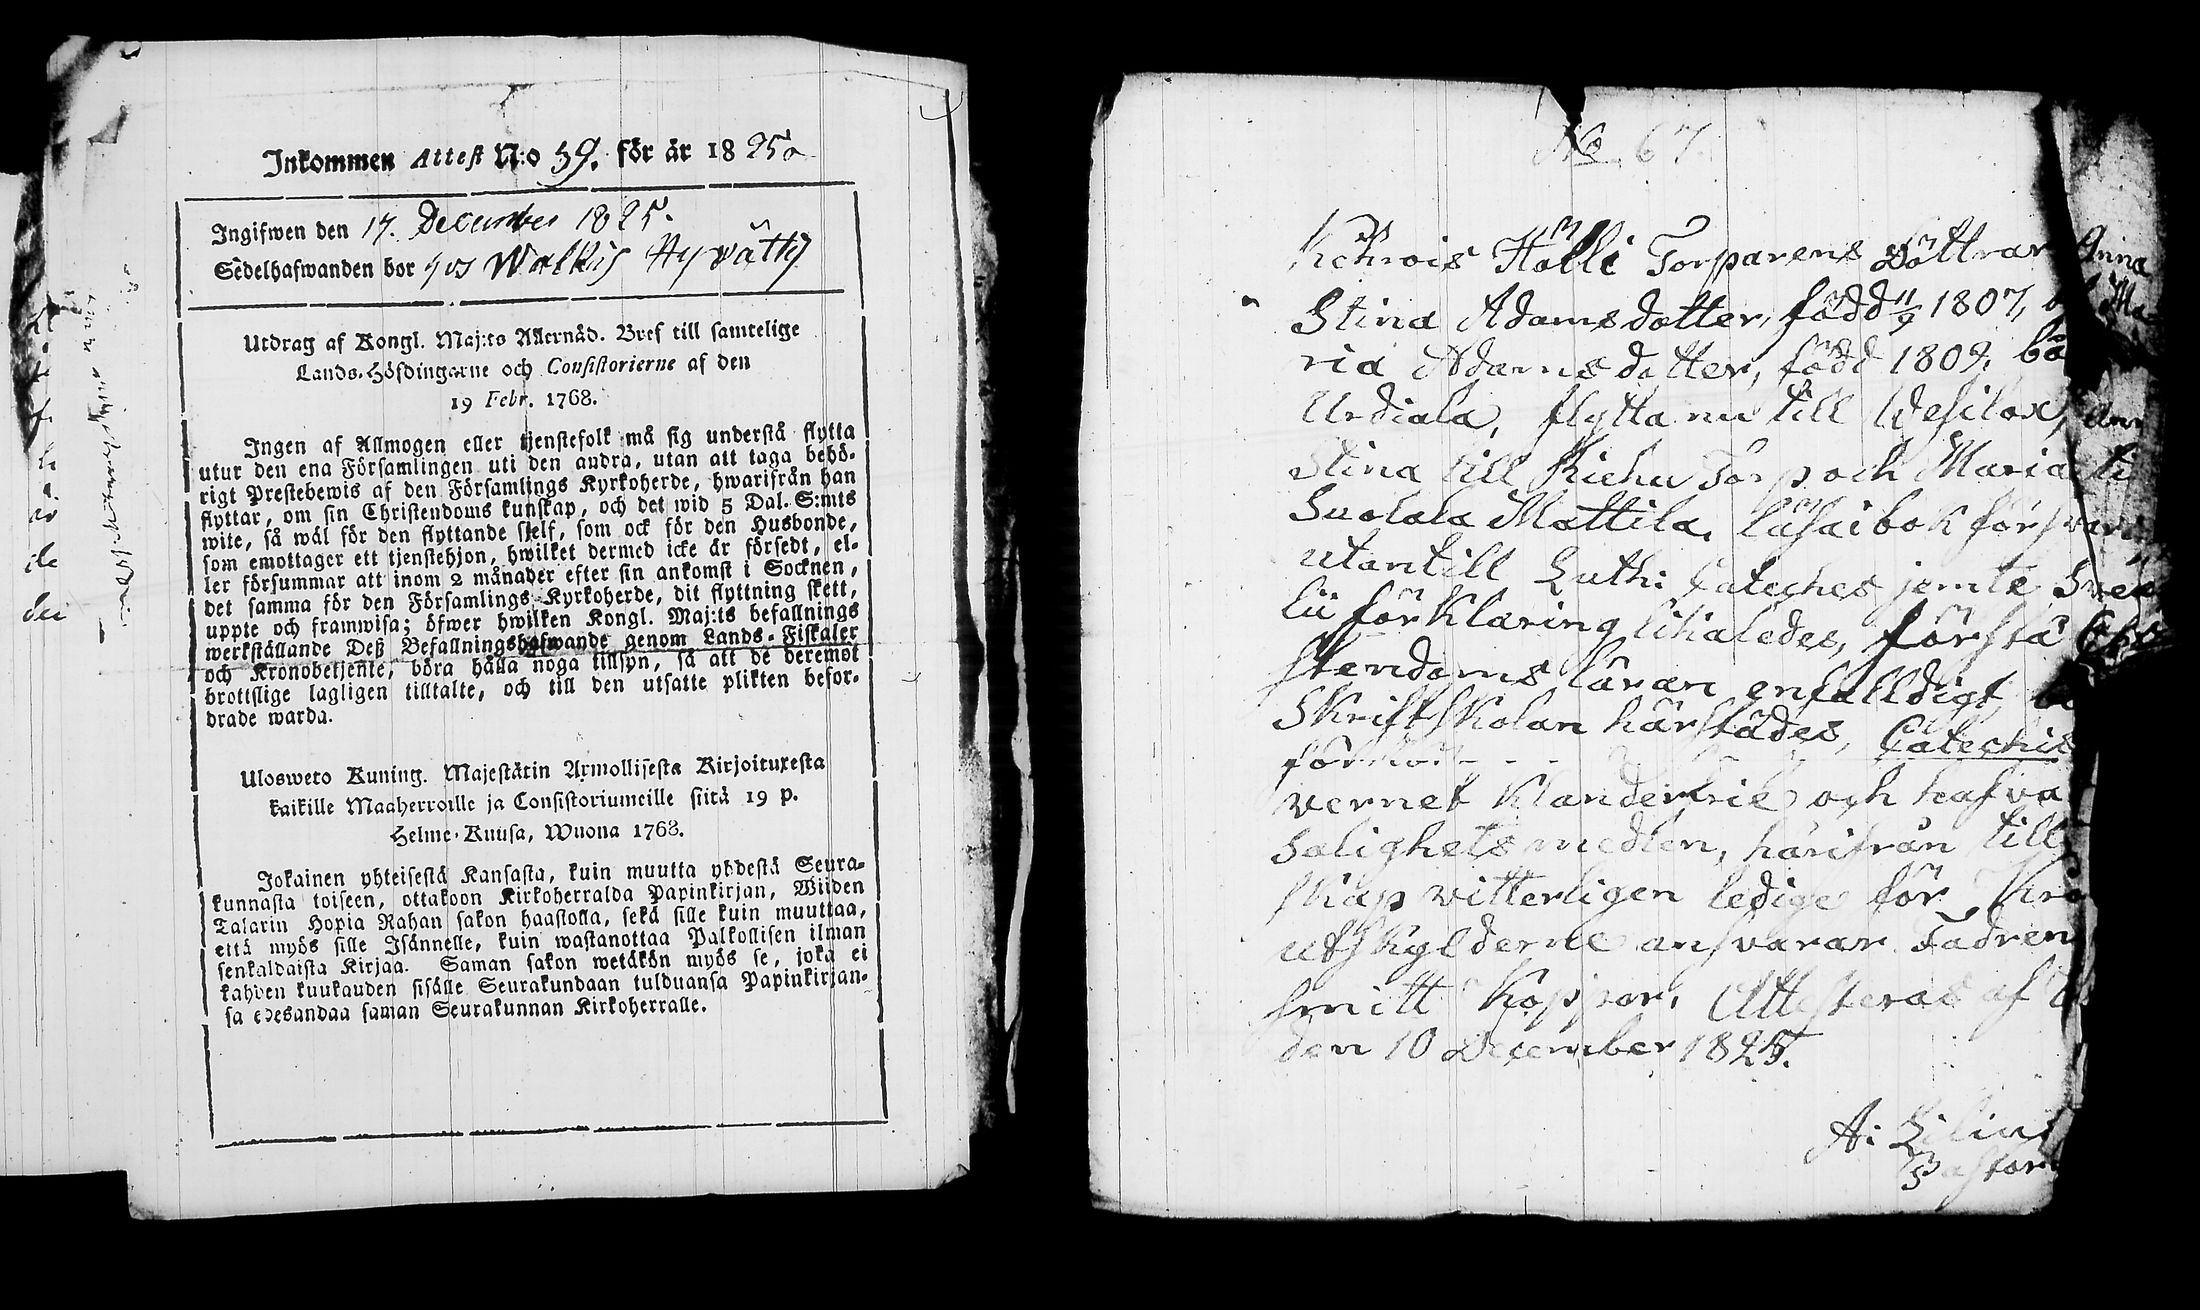 Inkommen Attest N:o 59. för år 1825
Ingifwen den 17. December 1825.
Sedelhafwanden bor hos
Utdrag af Kongl. Maj:ts Allernåd. Bref till samtelige
Lands-Höfdingarne och Consistorierne af den
19 Febr. 1768.
Ingen af Allmogen eller tjenstefolk må sig understå flytta
utur den ena Församlingen uti den andra, utan att taga behö-
rigt Prestebewis af den Församlings Kyrkoherde, hwarifrån han
flyttar, om sin Christendoms kunskap, och det wid 5 Dal. S:mts
wite, så wäl för den flyttande sjelf, som ock för den Husbonde,
som emottager ett tjenstehjon, hwilket dermed icke är försedt, el-
ler försummar att inom 2 månader efter sin ankomst i Socknen,
det samma för den Församlings-Kyrkoherde, dit flyttning skett,
uppte och framwisa; öfwer hwilken Kongl. Maj:ts befallnings
werkställande Deß Befallningshafwande genom Lands-Fiskaler
och Kronobetjente, böra hålla noga tillsyn, så att de deremot
brottslige lagligen tilltalte, och till den utsatte plikten befor-
drade warda.
Ulosweto Kuning. Majestätin Armollisesta Kirjoituxesta
kaikille Maaherroille ja Consistoriumeille siitä 19 p.
Helme-Kuusa, Wuona 1768.
Jokainen yhteisestä Kansasta, kuin muutta yhdestä Seura-
kunnasta toiseen, ottakoon Kirkoherralda Papinkirjan, Wiiden
Talarin Hopia Rahan sakon haastolla, sekä sille kuin muuttaa,
että myös sille Isännelle, kuin wastanottaa Palkollisen ilman
senkaldaista Kirjaa. Saman sakon wetäkön myös se, joka ei
kahden kuukauden sisälle Seurakundaan tulduansa Papinkirjan-
sa edesandaa saman Seurakunnan Kirkoherralle.
No 67.
Kehrois Hölli Torparens Döttrar Anna
Stina Adamsdotter, född 11/9 1807, Ma
ria Adamsdotter, född 1809, bå
Urdiala, flytta nu till Wesilax, Ann
Stina till Kiehu Torp och Maria ti
Suolala Mattila, läsa i bok försvar
utantill Luthi Cateches jemte Sve
lii förklaring likaledes, förstå Chri
stendoms läran enfalldigt
Skriftskolan härstädes, Catechis
förhör
vernet klanderfrie och hafva
salighets medlen, härifrån till
skap vitterligen ledige för Kro
utskylderne ansvarar Fadren
smitt koppor, Attesteras af
den 10 December 1825.
A: Lilius
Pastor